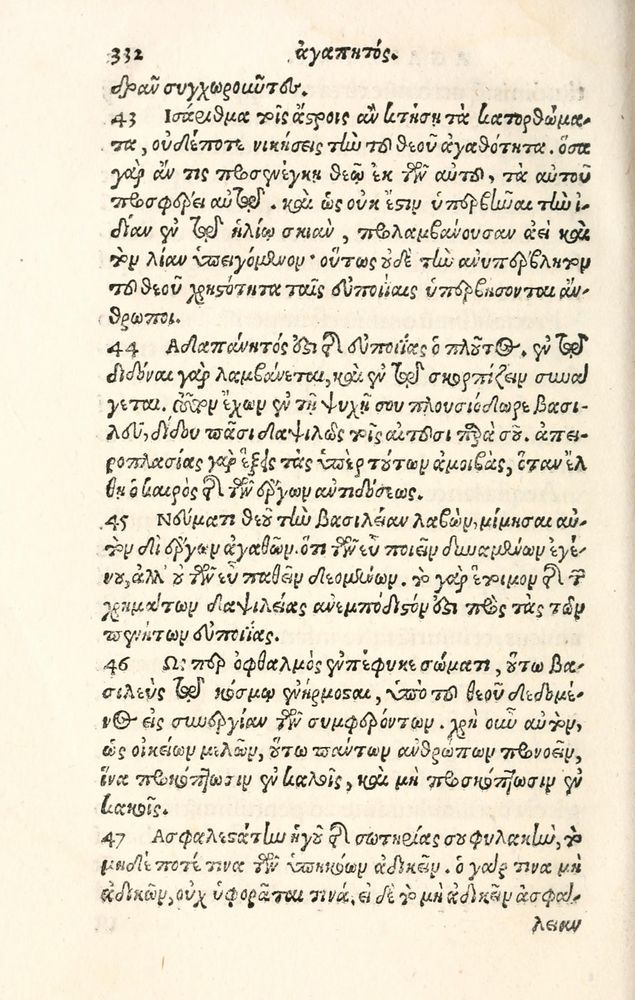 332 ἀγαπητός.
δρᾶν συγχωροιῶντου.
43 Ισάριθμα τοῖς ἄστροις ἂν κτήσῃ τὰ κατορθώμα-
τα, οὐδέποτε νικήσεις τὴν τοῦ θεοῦ ἀγαθότητα. ὅσα
γὰρ ἄν τις προσενέγκῃ θεῷ ἐκ τῶν αὐτοῦ, τὰ αὐτοῦ
προσφέρει αὐτῷ. καὶ ὡς οὐκ ἔστιν ὑπερβῆναι τὴν ἰ-
δίαν ἐν τῷ ἡλίῳ σκιὰν, προλαμβάνουσαν ἀεὶ καὶ
τὸν λίαν ἐπειγόμενον· οὕτως οὐδὲ τὴν ἀνυπέρβλητον
τοῦ θεοῦ χρηστότητα ταῖς εὐποιΐαις ὑπερβήσονται ἄν-
θρωποι.
44 Αδαπάνητός ἐστι τῆς εὐποιΐας ὁ πλοῦτος. ἐν τῷ
διδόναι γὰρ λαμβάνεται, καὶ ἐν τῷ σκορπίζειν συνά
γεται. τοῦτον ἔχων ἐν τῇ ψυχῇ σου πλουσιόδωρε βασι-
λεῦ, δίδου πᾶσι δαψιλῶς τοῖς αἰτοῦσι παρὰ σοῦ. ἀπει-
ροπλασίας γὰρ ἕξεις τὰς ὑπὲρ τούτων ἀμοιβὰς, ὅταν ἔλ
θῃ ὁ καιρὸς τῆς τῶν ἔργων ἀντιδόσεως.
45 Νεύματι θεοῦ τὴν βασιλείαν λαβὼν, μίμησαι αὐ-
τὸν δι' ἔργων ἀγαθῶν. ὅτι τῶν εὖ ποιεῖν δυναμένων ἐγέ-
νου, ἀλλ' οὐ τῶν εὖ παθεῖν δεομένων. τὸ γὰρ ἕτοιμον τῆς τῶν
χρημάτων δαψιλείας ἀνεμπόδιστόν ἐστι πρὸς τὰς τῶν
πενήτων εὐποιΐας.
46 Ως περ ὀφθαλμὸς ἐμπέφυκε σώματι, οὕτω βα-
σιλεὺς τῷ κόσμῳ ἐνήρμοσται, ὑπὸ τοῦ θεοῦ δεδομέ-
νος εἰς συνεργίαν τῶν συμφερόντων. χρὴ οὖν αὐτὸν,
ὡς οἰκείων μελῶν, οὕτω πάντων ἀνθρώπων προνοεῖν,
ἵνα προκόπτωσιν ἐν καλοῖς, καὶ μὴ προσκόπτωσιν ἐν
κακοῖς.
47 Ασφαλεστάτην ἡγοῦ τῆς σωτηρίας σου φυλακὴν, τὸ
μηδέποτέ τινα τῶν ὑπηκόων ἀδικεῖν. ὁ γάρ τινα μὴ
ἀδικῶν, οὐχ ὑφορᾶταί τινά. εἰ δὲ τὸ μὴ ἀδικεῖν ἀσφαλ-
λειαν